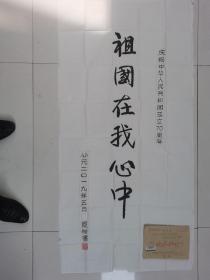 庆祝中华人民共和国成立70周年
祖國在我心中
公元二〇一九年五月